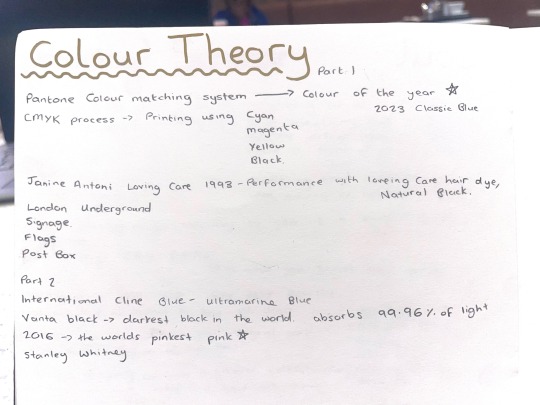 Colour Theory Part 1
Pantone Colour matching system → Colour of the year ☆
2023 Classic Blue
CMYK process -> Printing using Cyan
magenta
Yellow
Black.
Janine Antoni Loving Care 1993 - Performance with loveing Care hair dye,
Natural Black.
London Underground
Signage.
Flags
Post Box
Part 2
International Cline Blue - ultramarine Blue
Vanta black -> darkest black in the world. absorbs 99.96% of light
2016 -> the worlds pinkest pink ☆
Stanley Whitney